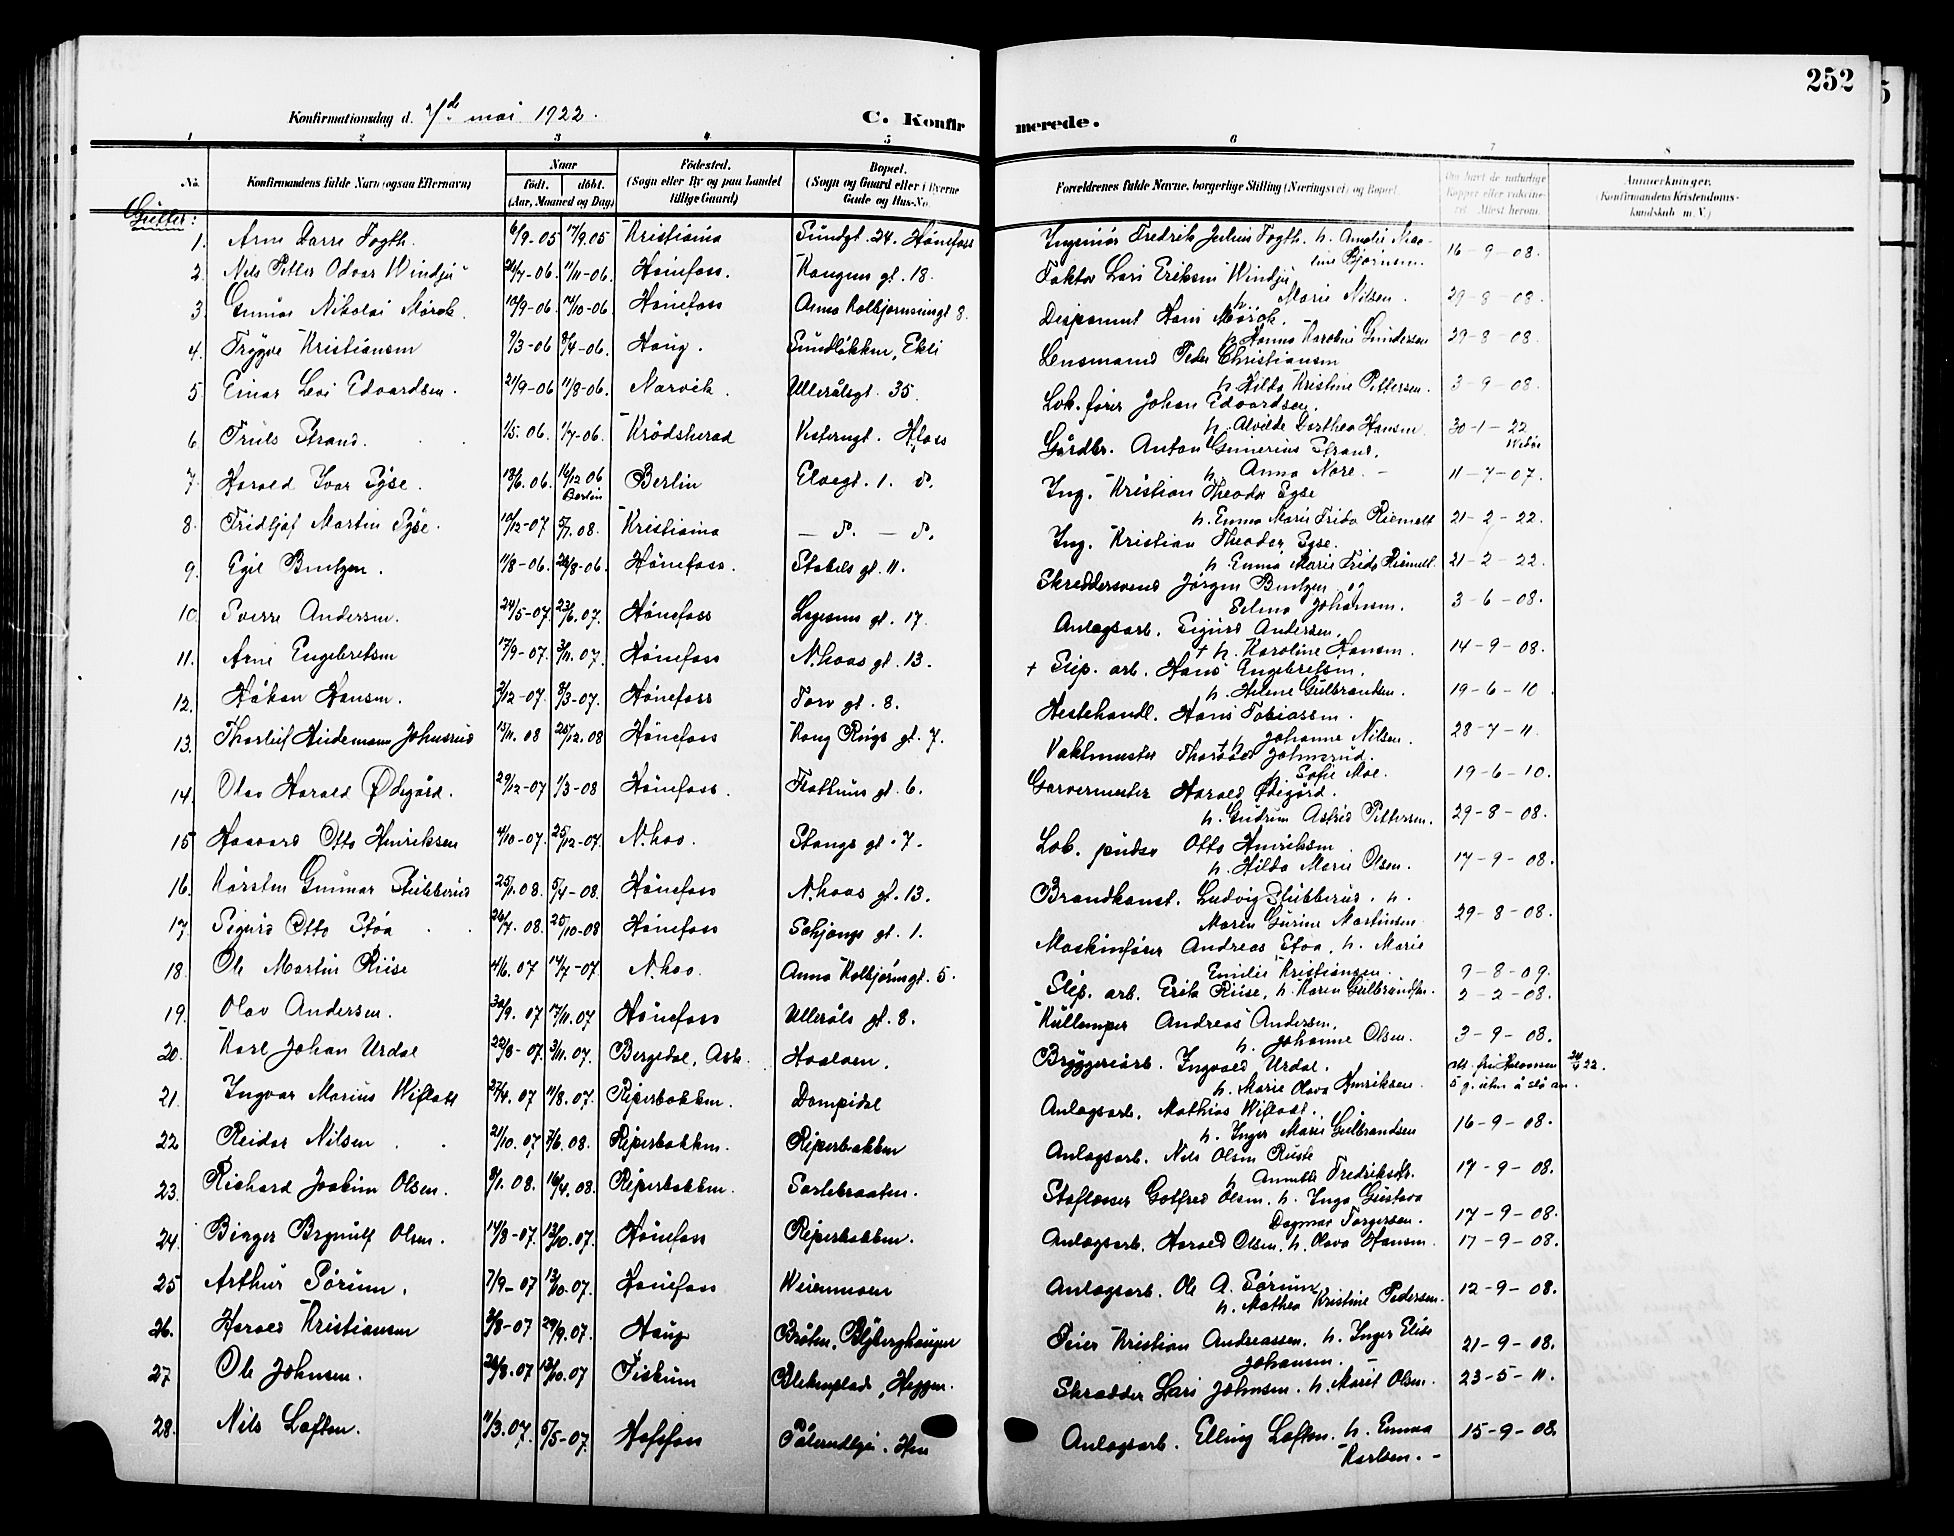 252
Konfirmationsdag d. 7de mai 1922.
C. Konfirmerede.
1 2 3 4 5 6 7 8
No. Konfirmandens fulde Navn (ogsaa Efternavn) Naar født. døbt. (Aar, Maaned og Dag) Fødested. (Sogn eller By og paa Landet tillige Gaard) Bopæl. (Sogn og Gaard eller i Byerne Gade og Hus-No. Forældrenes fulde Navne, borgerlige Stilling (Næringsvei) og Bopæl. Om havt de naturlige Kopper eller vakcineret. Attest herom. Anmærkninger. (Konfirmandens Kristendomskundskab m. V.)
Gutter:
1. Arne Darre Fogth. 6/9-05 17/9.05 Kristiania Sundgt. 24. Hønefoss Ingeniør Fredrik Julius Fogth. h. Amalie Nicoline Bjørnsen. 16-9-08.
2. Nils Petter Odvar Windju 26/7-06. 11/11-06. Hønefoss. Kongens gt. 18. Faktor Lars Eriksen Windju
h. Marie Nilsen. 29-8-08.
3. Gunnar Nikolai Mørch. 12/9-06. 14/10-06. Hønefoss Anna Kolbjørnsensgt 8. Disponent Hans Mørch.
h. Hanna Karoline Gundersen 29-8-08.
4. Trygve Kristiansen 9/3-06 8/4-06. Haug. Sundløkken, Ekli Lensmand Peder Christiansen
h. Hilda Kristine Pettersen. 3-9-08.
5. Einar Levi Edvardsen. 21/9-06 11/8-06. Narvik. Ullerålsgt. 35. Lok. fører Johan Edvardsen.
h. Alvilde Dorthea Hansen. 30-1-22
6. Truls Strand. 1/5-06. 1/7-06. Krødsherad Vesterngt. Hfoss Gårdbr. Anton Gunerius Strand.
h. Anna Nore. - 11-7-07.
7. Harald Ivar Syse. 18/6.06. 16/12 06 Berlin Berlin Elvegt. 1. d. Ing. Kristian Theodor Syse
h. Emma Marie Frida Riemelt 21-2-22.
8. Fridtjof Martin Syse. 10/12-07 5/7.08. Kristiania - d. - d. Ing. Kristian Theodor Syse.
h. Emma Marie Frida Riemelt 21-2-22.
9. Egil Bentzen. 11/8-06. 26/8-06. Hønefoss. Stabels gt. 11. Skreddersvend Jørgen Bentzen og
Selma Johansen. 3-6-08.
10. Sverre Andersen. 24/5-07. 23/6.07. Hønefoss Legesens gt. 17. Anlægsarb. Sigurd Andersen.
+ h. Karoline Hansen. 14-9-08.
11. Arne Engebretsen 17/9-07. 3/11.07. Hønefoss N. hoos gt. 13. + Slip. arb. Hans Engebretsen.
h. Helene Gulbrandsen. 19-6-10
12. Håkon Hansen. 2/12-07. 8/3-07. Hønefoss Torv gt. 8. Hestehandl. Hans Tobiassen.
+ h. Johanne Nilsen. 28-7-11.
13. Thorleif Heidemann Johnsrud 13/11.08 26/12.08 Hønefoss Kong Rings gt. 7. Vaktmester Thorvald Johnsrud.
h. Sofie Moe. 19-6-10.
14. Olav Harald Ødegård. 29/12-07 1/3-08 Hønefoss. Flattums gt. 6. Garvermester Harald Ødegård.
h. Gudrun Astrid Pettersen. 29-8-08.
15 Haavard Otto Henriksen 4/10-07. 25/12-07. N. hoo. Stangs gt. 7. Lok. pudser Otto Henriksen
h. Hilda Marie Olsen. 17-9-08.
16. Karsten Gunnar Stubberud 25/1.08. 5/4-08. Hønefoss N. hoos gt. 13. Brandkonst. Ludvig Stubberud. h.
Maren Gurine Martinsen 29-8-08.
17. Sigurd Otto Støa 26/7.08. 25/10-08 Hønefoss Schjongs gt. 1. Maskinfører Andreas Støa, h. Marie
Emilie Kristiansen. 9-8-09.
18. Ole Martin Riise 4/6.07 14/7-07 N. hoo. Anna Kolbjørnsgt. 5. Slip. arb. Erik Riise, h. Karen Gulbrandsen. 2-2-08.
19. Olav Andersen. 30/9.07 17/11.07 Hønefoss Ulleråls gt. 8. Kullemper Andreas Andersen.
h. Johanne Olsen. 3-9-08.
20. Karl Johan Urdal 22/8-07. 3/11.07. Bergedal, Ask. Hoolven. Bryggeriarb. Ingvald Urdal.
h. Marie Olava Henriksen. 5 g. uten å slå an.
21. Ingvar Marius Wiflatt 27/4.07 11/8.07. Ripersbakken. Dompidal Anlægsarb. Mathias Wiflatt.
h. Inger Marie Gulbrandsen 16-9-08.
22 Reidar Nilsen 21/10.07. 7/6.08. Ripersbakken. Ripersbakken Anlægsarb. Nils Olsen Ruste
h. Annette Fredriksdtr. 17-9-08.
23. Richard Joakim Olsen. 9/1.08. 16/4.08. Ripersbakken. Sortebraaten. Støflosser Gotfred Olsen. h. Inga Gustava
Dagmar Torgersen. 17-9-08.
24. Birger Brynulf Olsen. 14/8-07. 13/10.07. Hønefoss Ripersbakken. Anlægsarb. Harald Olsen. h. Olava Hansen. 17-9-08.
25 Arthur Sørum. 7/9-07 13/10.07. Hønefoss Veienmoen Anlægsarb. Ole A. Sørum
h. Mathea Kristine Pedersen. 12-9-08.
26. Harald Kristiansen 3/8-07 29/9.07. Haug Bråten, Blyberghaugen Feier Kristian Andreassen. h. Inger Elise
Johansen. - 21-9-08.
27 Ole Johnsen. 26/8.07 13/10.07 Fiskum Blekenplads, Heggen. Skrædder Lars Johnsen. h. Marit Olsen. 23-5-11.
28. Nils Loften. 11/3.07. 5/5-07. Hofsfoss Anlægsarb. Elling Loften. h. Emma
Karlsen. - 15-9-08.